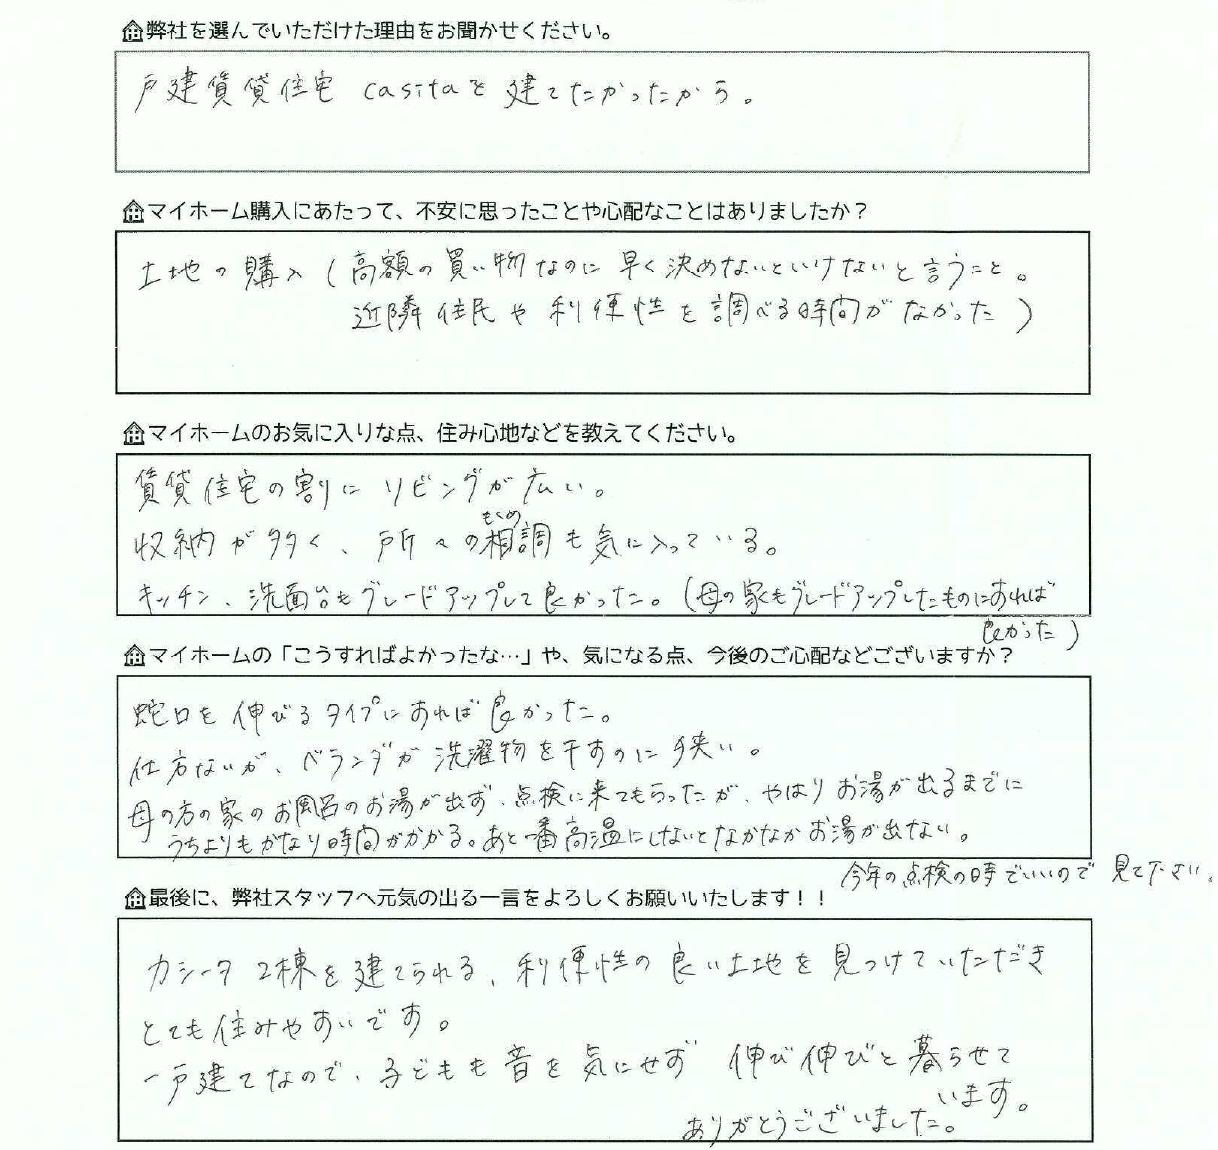 弊社を選んでいただけた理由をお聞かせください。
戸建賃貸住宅 casitaを建てたかったから。
マイホーム購入にあたって、不安に思ったことや心配なことはありましたか？
土地の購入(高額の買い物なのに早く決めないといけないと言うこと。
近隣住民や利便性を調べる時間がなかった)
マイホームのお気に入りな点、住み心地などを教えてください。
賃貸住宅の割にリビングが広い。
もくめ
収納が多く、所々の相調も気に入っている。
キッチン、洗面台もグレードアップして良かった。(母の家もグレードアップしたものにあれば
良かった)
マイホームの「こうすればよかったな…」や、気になる点、今後のご心配などございますか？
蛇口を伸びるタイプにあれば良かった。
仕方ないが、ベランダが洗濯物を干すのに狭い。
母の方の家のお風呂のお湯が出ず、点検に来てもらったが、やはりお湯が出るまでに
うちよりもかなり時間がかかる。あと一番高温にしないとなかなかお湯が出ない。
今年の点検の時でいいので見て下さい。
最後に、弊社スタッフへ元気の出る一言をよろしくお願いいたします！！
カシータ2棟を建てられる、利便性の良い土地を見つけていただき
とても住みやすいです。
一戸建てなので、子どもも音を気にせず伸び伸びと暮らせて
います。
ありがとうございました。